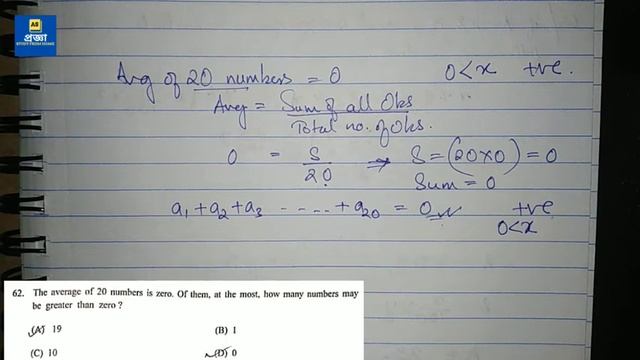 AS
প্রজ্ঞা
STUDY FROM HOME
Avg of 20 numbers = 0 0 < x +ve.
Avg = Sum of all Obs / Total no. of Obs.
0 = S / 20 → S = (20×0) = 0
Sum = 0
a₁ + a₂ + a₃ ----- + a₂₀ = 0 +ve
0 < x
62. The average of 20 numbers is zero. Of them, at the most, how many numbers may
be greater than zero ?
(A) 19 (B) 1
(C) 10 (D) 0